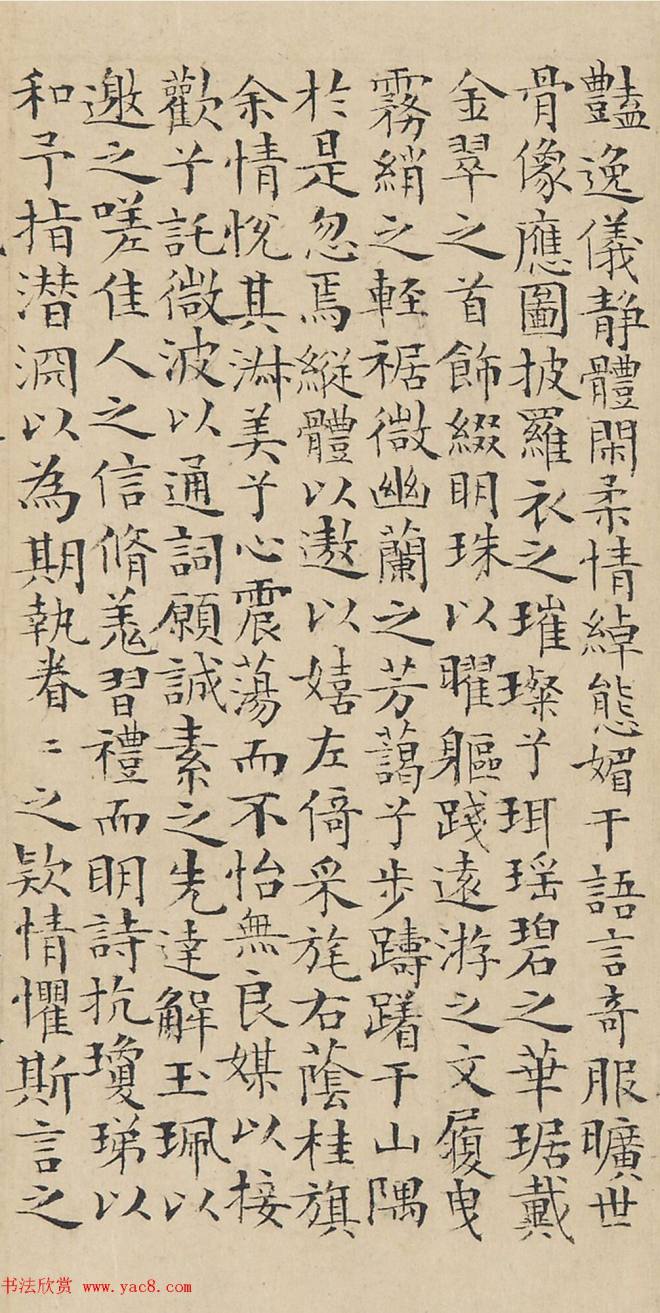 豔逸儀静體閑柔情綽態媚于語言奇服曠世
骨像應圖披羅衣之璀璨兮珥瑶碧之華琚戴
金翠之首飾綴明珠以曜軀踐遠游之文履曳
霧綃之輕裾微幽蘭之芳藹兮步躊躇于山隅
於是忽焉縱體以遨以嬉左倚采旄右蔭桂旗
余情悅其淋美兮心震蕩而不怡無良媒以接
歡兮託微波以通詞願誠素之先達解玉珮以
邀之嗟佳人之信脩羗習禮而明詩抗瓊珶以
和予指潜淵以為期執眷〻之款情懼斯言之
书法欣赏 www.yac8.com